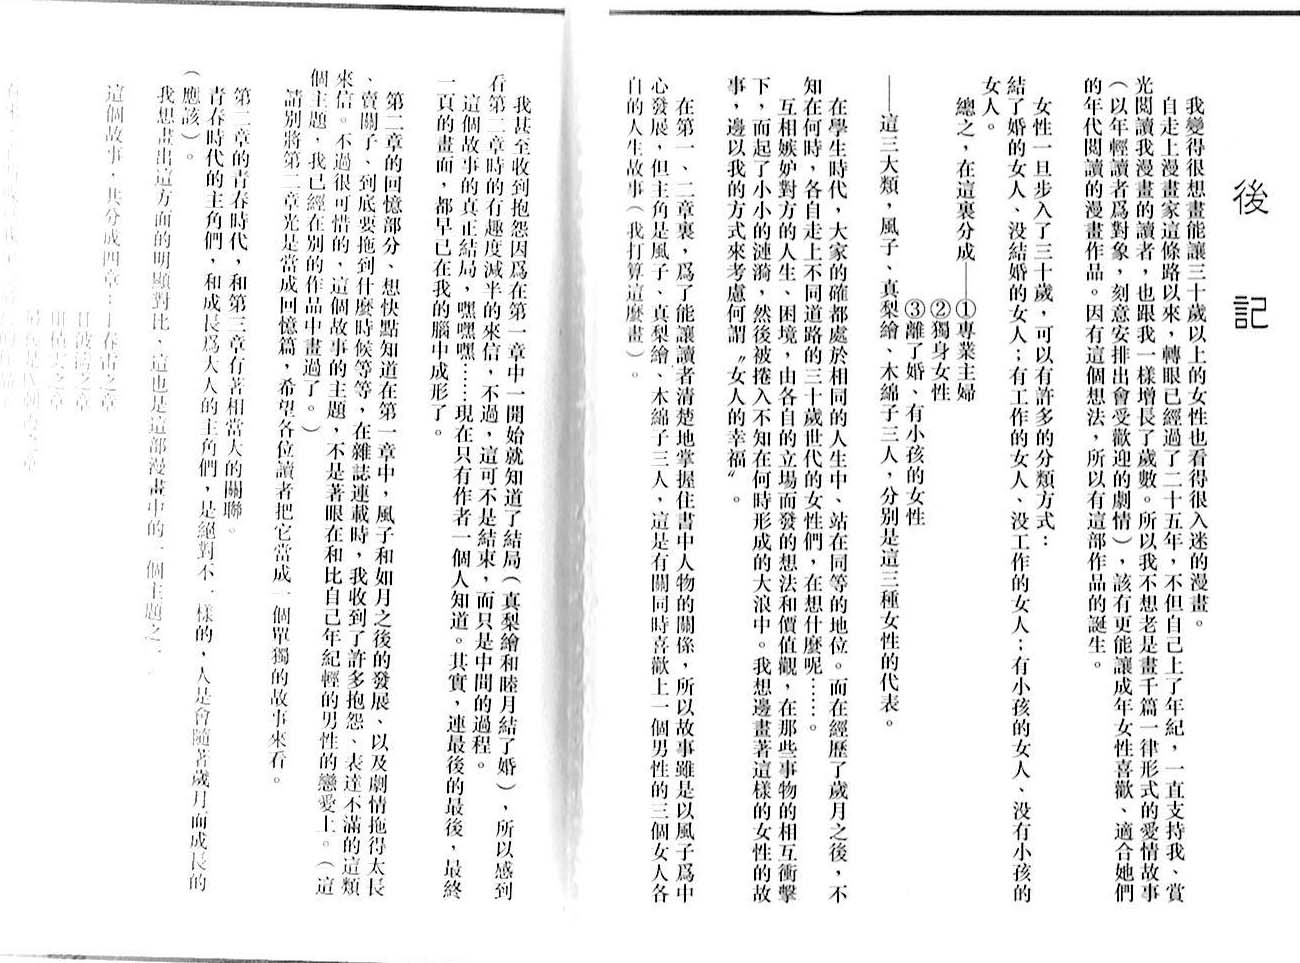 後記
我變得很想畫能讓三十歲以上的女性也看得很入迷的漫畫。
自走上漫畫家這條路以來，轉眼已經過了二十五年，不但自己上了年紀，一直支持我、賞
光閱讀我漫畫的讀者，也跟我一樣增長了歲數。所以我不想老是畫千篇一律形式的愛情故事
（以年輕讀者爲對象，刻意安排出會受歡迎的劇情），該有更能讓成年女性喜歡、適合她們
的年代閱讀的漫畫作品。因有這個想法，所以有這部作品的誕生。
女性一旦步入了三十歲，可以有許多的分類方式：
結了婚的女人、沒結婚的女人；有工作的女人、沒工作的女人；有小孩的女人、沒有小孩的
女人。
總之，在這裏分成——①專業主婦
②獨身女性
③離了婚、有小孩的女性
——這三大類，風子、真梨繪、木綿子三人，分別是這三種女性的代表。
在學生時代，大家的確都處於相同的人生中、站在同等的地位。而在經歷了歲月之後，不
知在何時，各自走上不同道路的三十歲世代的女性們，在想什麼呢……。
互相嫉妒對方的人生、困境，由各自的立場而發的想法和價值觀，在那些事物的相互衝擊
下，而起了小小的漣漪，然後被捲入不知在何時形成的大浪中。我想邊畫著這樣的女性的故
事，邊以我的方式來考慮何謂〝女人的幸福〞。
在第一、二章裏，爲了能讓讀者清楚地掌握住書中人物的關係，所以故事雖是以風子爲中
心發展，但主角是風子、真梨繪、木綿子三人，這是有關同時喜歡上一個男性的三個女人各
自的人生故事（我打算這麼畫）。
我甚至收到抱怨因爲在第一章中一開始就知道了結局（真梨繪和睦月結了婚），所以感到
看第二章時的有趣度減半的來信，不過，這可不是結束，而只是中間的過程。
這個故事的真正結局，嘿嘿嘿……現在只有作者一個人知道。其實，連最後的最後，最終
一頁的畫面，都早已在我的腦中成形了。
第二章的回憶部分、想快點知道在第一章中，風子和如月之後的發展、以及劇情拖得太長
、賣關子、到底要拖到什麼時候等等，在雜誌連載時，我收到了許多抱怨、表達不滿的這類
來信。不過很可惜的，這個故事的主題，不是著眼在和比自己年紀輕的男性的戀愛上。（這
個主題，我已經在別的作品中畫過了。）
請別將第二章光是當成回憶篇，希望各位讀者把它當成一個單獨的故事來看。
第二章的青春時代，和第三章有著相當大的關聯。
青春時代的主角們，和成長爲大人的主角們，是絕對不一樣的，人是會隨著歲月而成長的
（應該）。
我想畫出這方面的明顯對比、這也是這部漫畫中的一個主題之一。
這個故事，共分成四章：